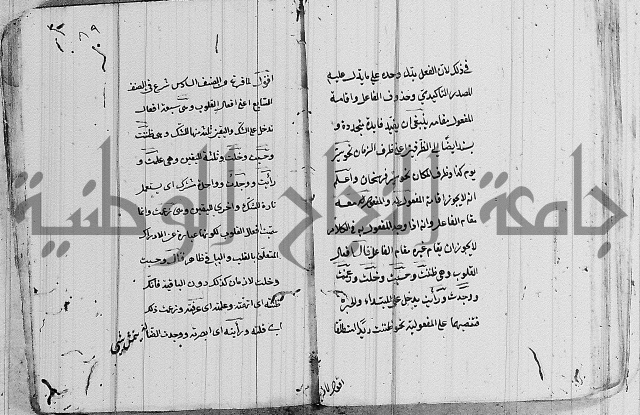 في ذلك لان الفعل يدل وحده على ما يدل عليه
المصدر التأكيدي وحذوف الفاعل واقامة
المفعول مقامه ينبغي ان يفيد فايدة متجددة و
يسند ايضا الى الظرفين اعني ظرف الزمان نحو سير
يوم كذا وظرف المكان نحو سير فرسخان واعلم
انه لا يجوز اقامة المفعول له والمفعول معه
مقام الفاعل وانه اذا وجد المفعول به في الكلام
لا يجوز ان يقام غيره مقام الفاعل قال افعال
القلوب وهي ظننت وحسبت وخلت وزعمت
ووجدت ورأيت يدخل على المبتداء والخبر
فتنصبهما على المفعولية نحو ظننت زيدا منطلقا
اقول لما فرغ من الصنف السادس شرع في الصنف
السابع اعني افعال القلوب وهي سبعة افعال
تدخل على الشك واليقين ثلثة منها للشك وهي ظننت
وحسبت وخلت وثلثة لليقين وهي علمت و
رأيت ووجدت وواحد مشترك اي يستعمل
تارة للشك واخرى لليقين وهي زعمت وانما
سميت افعال القلوب لكونها عبارة عن الادراك
المتعلق بالقلب والباقي ظاهر قال وحسبت
وخلت لازمان كذلك دون الباقية فانك
ظننته اي اتهمته وعلمته اي عرفته وزعمت ذلك
اي قلته ورأيته اي ابصرته ووجدت الضالة
جامعة النجاح الوطنية